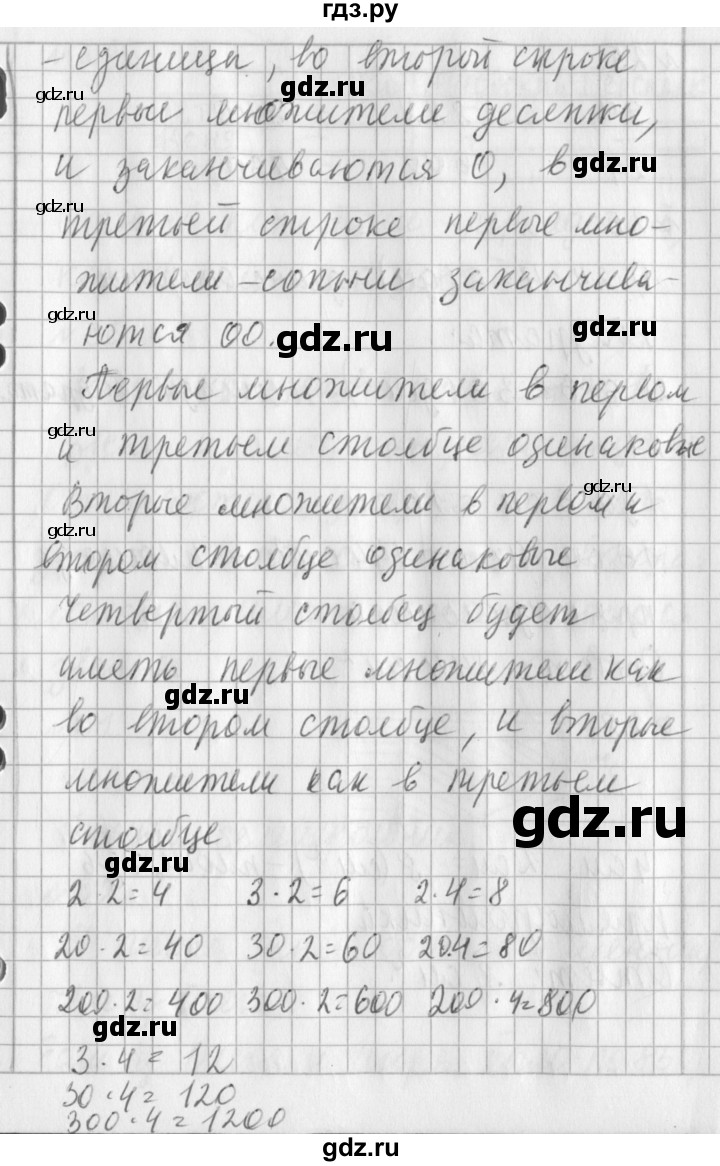 гдз.ру
- единица, во второй строке
gdz.ru
gdz.ru
первые множители десятки,
и заканчиваются 0, в
gdz.ru
gdz.ru
третьей строке первые мно-
жители - сотни заканчива-
gdz.ru
ются 00.
gdz.ru
gdz.ru
Первые множители в первом
gdz.ru
и третьем столбце одинаковые
gdz.ru
Вторые множители в первом и
gdz.ru
втором столбце одинаковые
Четвертый столбец будет
иметь первые множители как
gdz.ru
во втором столбце, и вторые
множители как в третьем
gdz.ru
столбце
gdz.ru
2·2=4 3·2=6 2·4=8
20·2=40 30·2=60 20·4=80
gdz.ru
200·2=400 300·2=600 200·4=800
gdz.ru
3·4=12
30·4=120
300·4=1200
gdz.ru